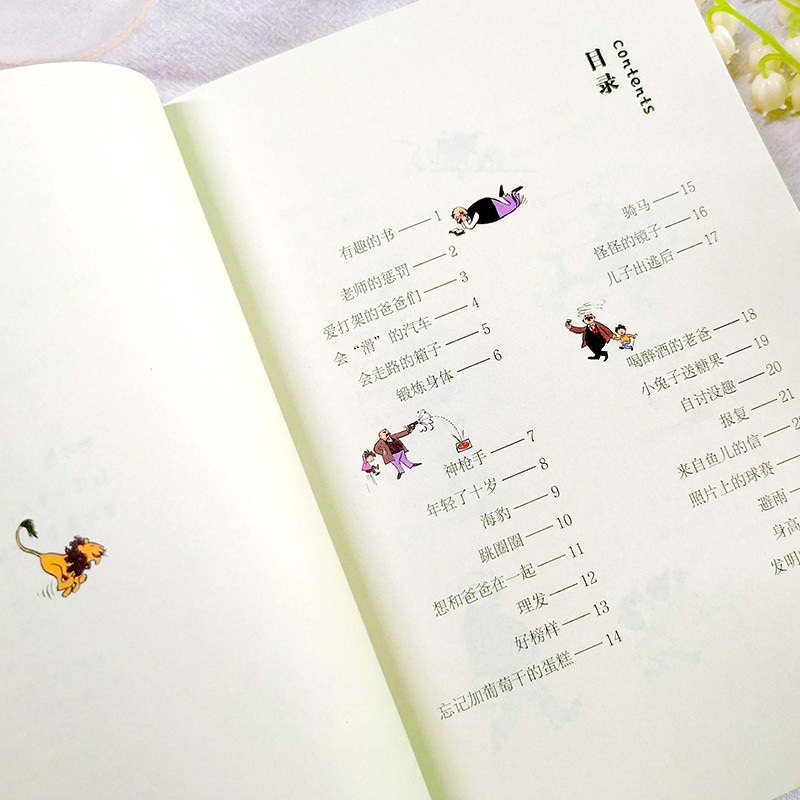 目录
Contents
有趣的书——1
老师的惩罚——2
爱打架的爸爸们——3
会“滑”的汽车——4
会走路的箱子——5
锻炼身体——6
神枪手——7
年轻了十岁——8
海豹——9
跳圈圈——10
想和爸爸在一起——11
理发——12
好榜样——13
忘记加葡萄干的蛋糕——14
骑马——15
怪怪的镜子——16
儿子出逃后——17
喝醉酒的老爸——18
小兔子送糖果——19
自讨没趣——20
报复——21
来自鱼儿的信——22
照片上的球赛——
避雨—
身高
发明